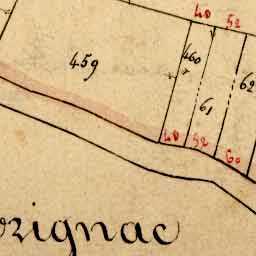 40 52
459
460
61
62
40 52 60
orignac